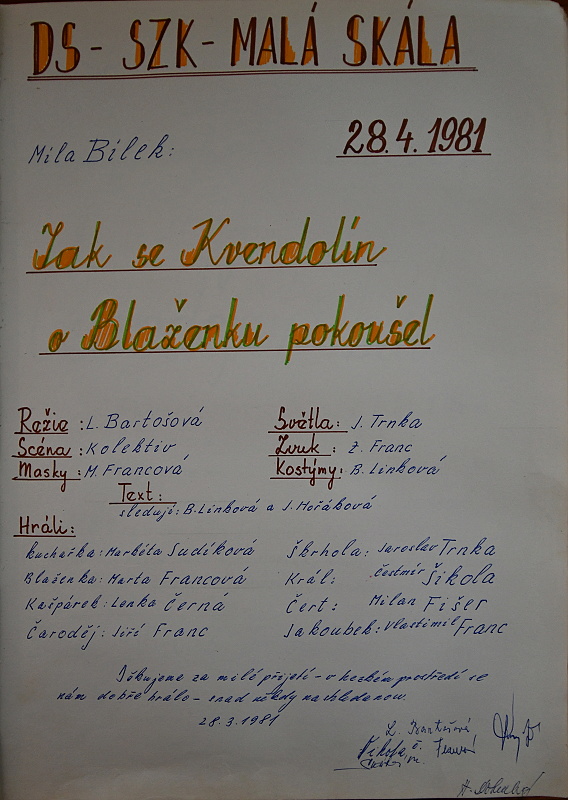 DS - SZK - MALÁ SKÁLA
28.4.1981
Míla Bílek:
Jak se Kvendolín
o Blaženku pokoušel
Režie : L. Bartošová
Světla: J. Trnka
Scéna : Kolektiv
Zvuk : Z. Franc
Masky : M. Francová
Kostýmy: B. Linková
Text :
sledují: B. Linková a J. Hořáková
Hráli:
kuchařka: Markéta Sudíková
Škrhola: Jaroslav Trnka
Blaženka: Marta Francová
Král: Čestmír Šikola
Kašpárek: Lenka Černá
Čert: Milan Fišer
Čaroděj: Jiří Franc
Jakoubek: Vlastimil Franc
Děkujeme za milé přijetí - v hezkém prostředí se
nám dobře hrálo - snad někdy na shledanou.
28.3.1981
L. Bartošová